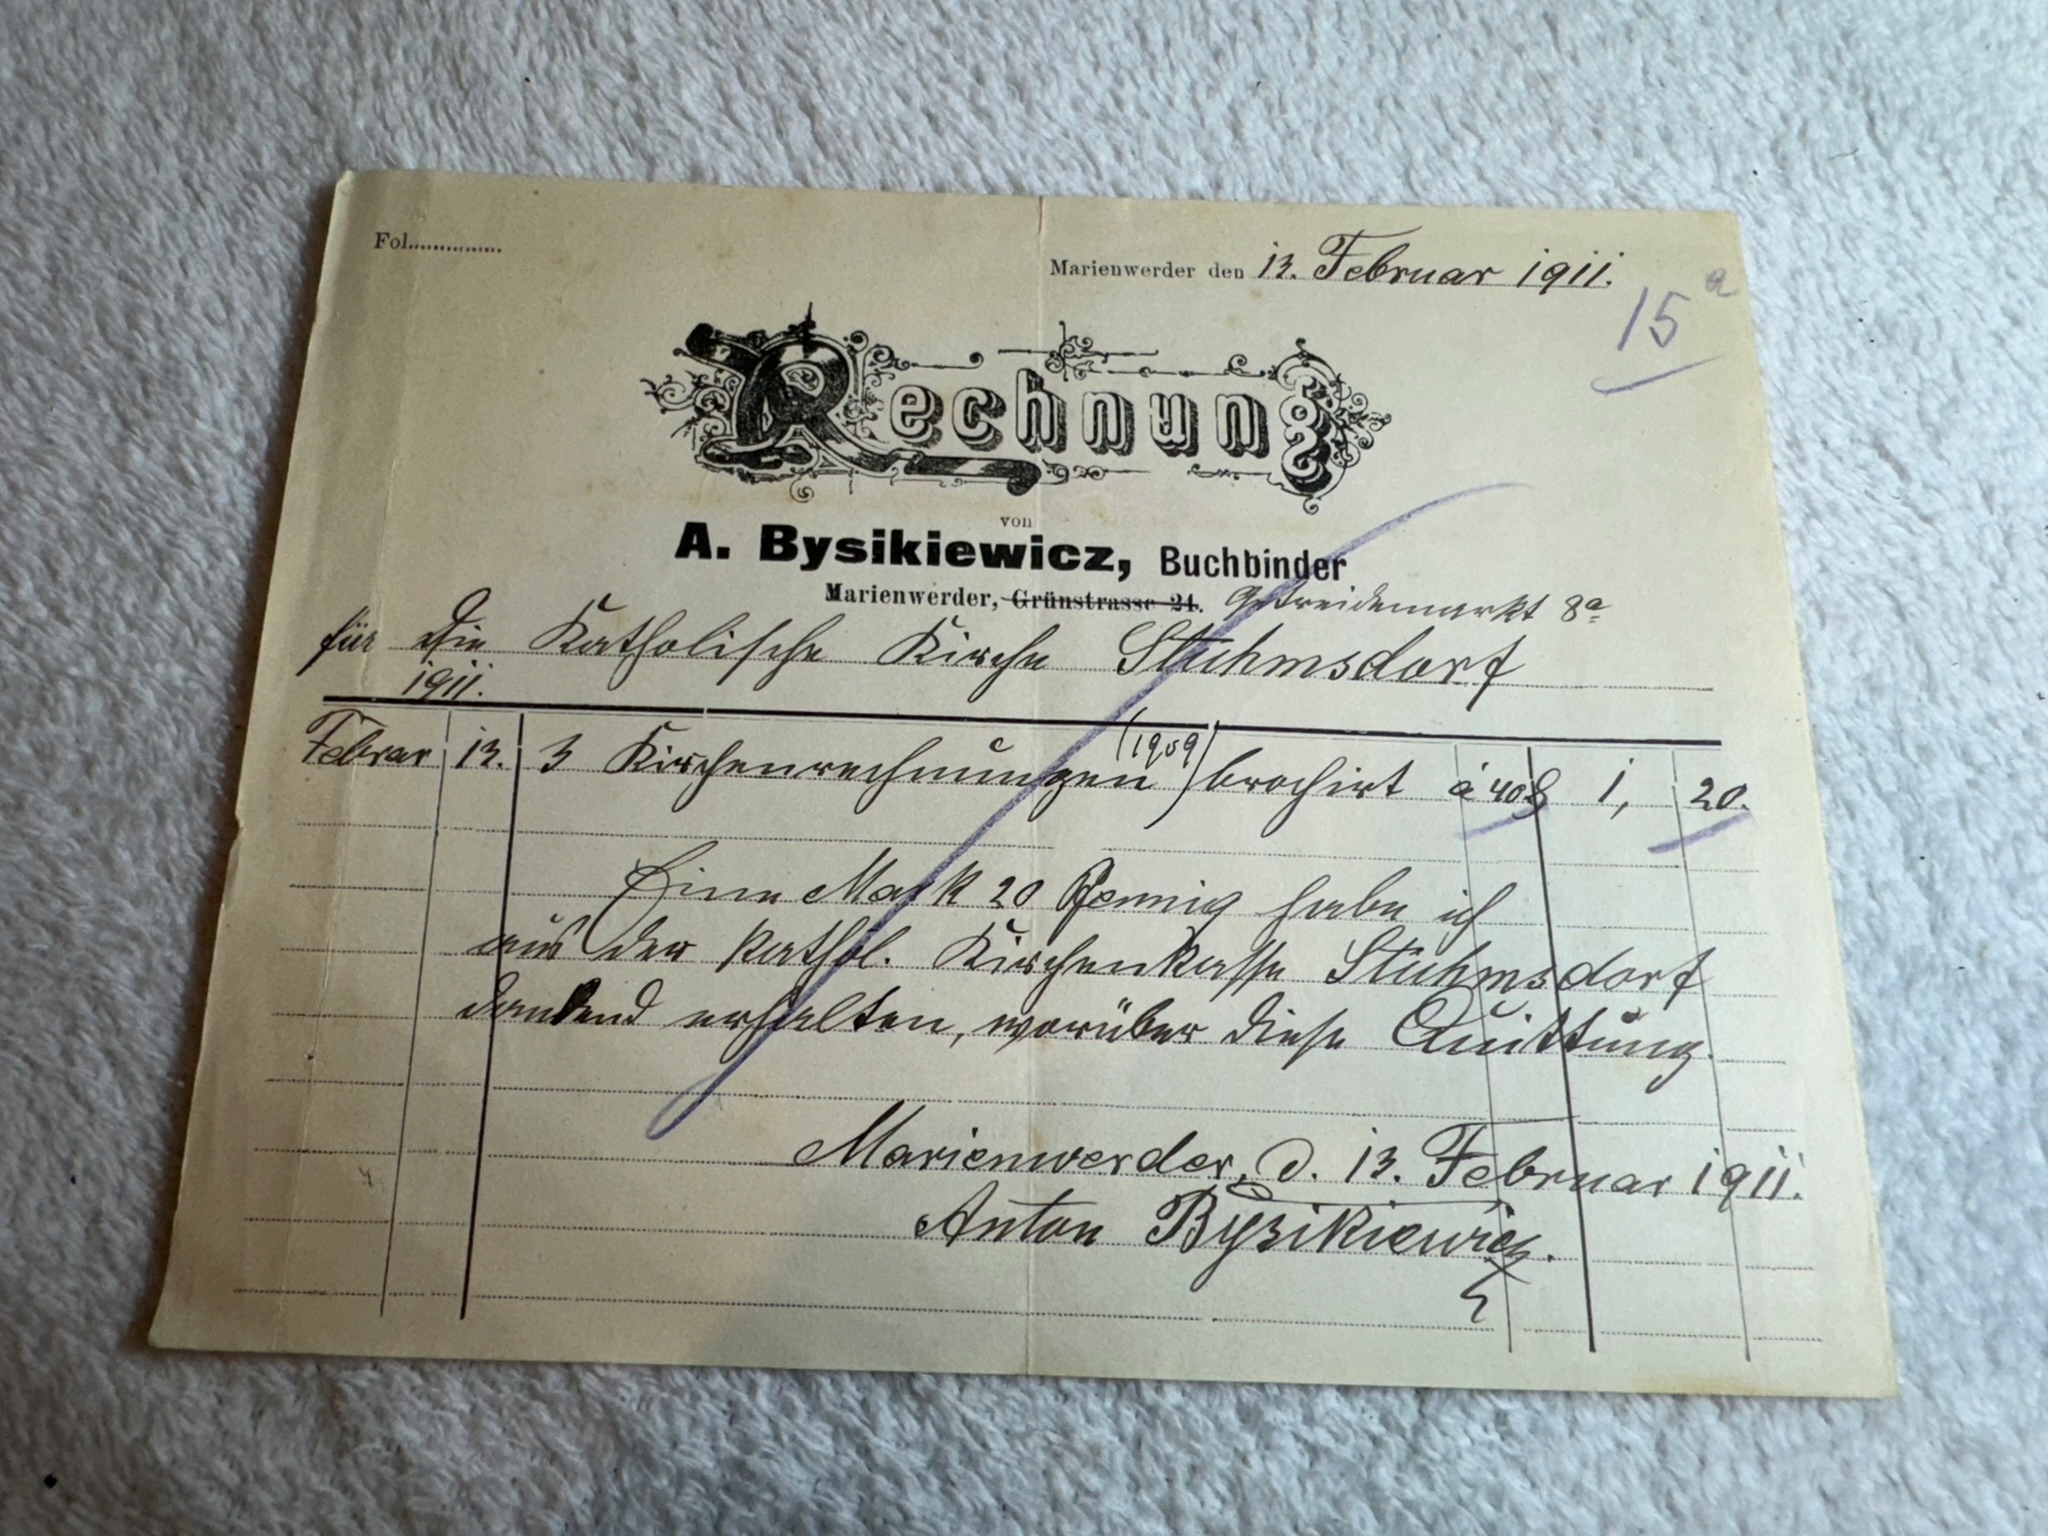 Fol...............
Marienwerder den 13. Februar 1911.
15 a
Rechnung
von
A. Bysikiewicz, Buchbinder
Marienwerder, Grünstrasse 24. Getreidemarkt 8a
für die Katholische Kirche Stuhmsdorf
1911.
Februar 13. 3 Kirchenrechnungen (1909) brochirt à 40 ₰ 1, 20.
Eine Mark 20 Pfennig habe ich
aus der kathol. Kirchenkasse Stuhmsdorf
dankend erhalten, worüber diese Quittung.
Marienwerder, d. 13. Februar 1911.
Anton Bysikiewicz.